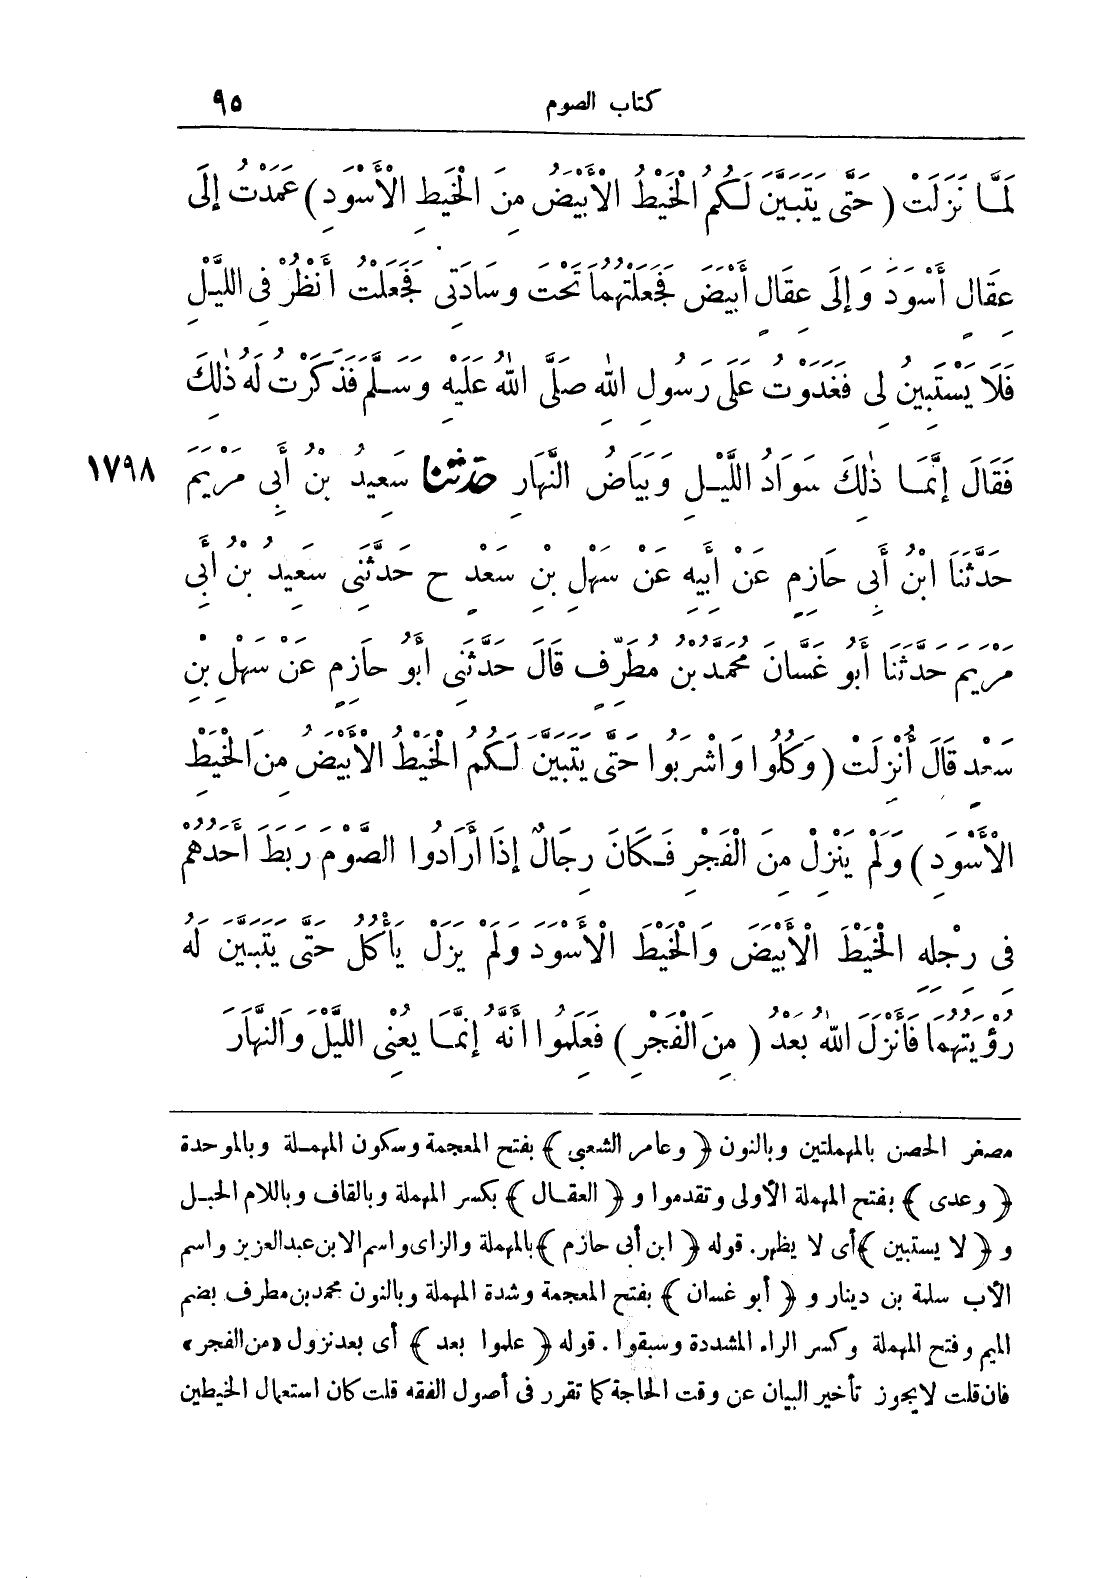 كتاب الصوم ٩٥
لَمَّا نَزَلَتْ ( حَتَّى يَتَبَيَّنَ لَكُمُ الْخَيْطُ الْأَبْيَضُ مِنَ الْخَيْطِ الْأَسْوَدِ ) عَمَدْتُ إِلَى
عِقَالٍ أَسْوَدَ وَإِلَى عِقَالٍ أَبْيَضَ فَجَعَلْتُهُمَا تَحْتَ وِسَادَتِي فَجَعَلْتُ أَنْظُرُ فِي اللَّيْلِ
فَلَا يَسْتَبِينُ لِي فَغَدَوْتُ عَلَى رَسُولِ اللهِ صَلَّى اللهُ عَلَيْهِ وَسَلَّمَ فَذَكَرْتُ لَهُ ذٰلِكَ
فَقَالَ إِنَّمَا ذٰلِكَ سَوَادُ اللَّيْلِ وَبَيَاضُ النَّهَارِ حدثنا سَعِيدُ بْنُ أَبِي مَرْيَمَ ١٧٩٨
حَدَّثَنَا ابْنُ أَبِي حَازِمٍ عَنْ أَبِيهِ عَنْ سَهْلِ بْنِ سَعْدٍ ح حَدَّثَنِي سَعِيدُ بْنُ أَبِي
مَرْيَمَ حَدَّثَنَا أَبُو غَسَّانَ مُحَمَّدُ بْنُ مُطَرِّفٍ قَالَ حَدَّثَنِي أَبُو حَازِمٍ عَنْ سَهْلِ بْنِ
سَعْدٍ قَالَ أُنْزِلَتْ ( وَكُلُوا وَاشْرَبُوا حَتَّى يَتَبَيَّنَ لَكُمُ الْخَيْطُ الْأَبْيَضُ مِنَ الْخَيْطِ
الْأَسْوَدِ ) وَلَمْ يَنْزِلْ مِنَ الْفَجْرِ فَكَانَ رِجَالٌ إِذَا أَرَادُوا الصَّوْمَ رَبَطَ أَحَدُهُمْ
فِي رِجْلِهِ الْخَيْطَ الْأَبْيَضَ وَالْخَيْطَ الْأَسْوَدَ وَلَمْ يَزَلْ يَأْكُلُ حَتَّى يَتَبَيَّنَ لَهُ
رُؤْيَتُهُمَا فَأَنْزَلَ اللهُ بَعْدُ ( مِنَ الْفَجْرِ ) فَعَلِمُوا أَنَّهُ إِنَّمَا يَعْنِي اللَّيْلَ وَالنَّهَارَ
مصغر الحصن بالمهملتين وبالنون ﴿ وعامر الشعبي ﴾ بفتح المعجمة وسكون المهملة وبالموحدة
﴿ وعدى ﴾ بفتح المهملة الأولى وتقدموا و ﴿ العقال ﴾ بكسر المهملة وبالقاف وباللام الحبل
و ﴿ لا يستبين ﴾ أى لا يظهر. قوله ﴿ ابن أبى حازم ﴾ بالمهملة والزاى واسم الابن عبد العزيز واسم
الأب سلمة بن دينار و ﴿ أبو غسان ﴾ بفتح المعجمة وشدة المهملة وبالنون محمد بن مطرف بضم
الميم وفتح المهملة وكسر الراء المشددة وسبقوا . قوله ﴿ علموا بعد ﴾ أى بعد نزول «من الفجر»
فان قلت لايجوز تأخير البيان عن وقت الحاجة كما تقرر فى أصول الفقه قلت كان استعمال الخيطين